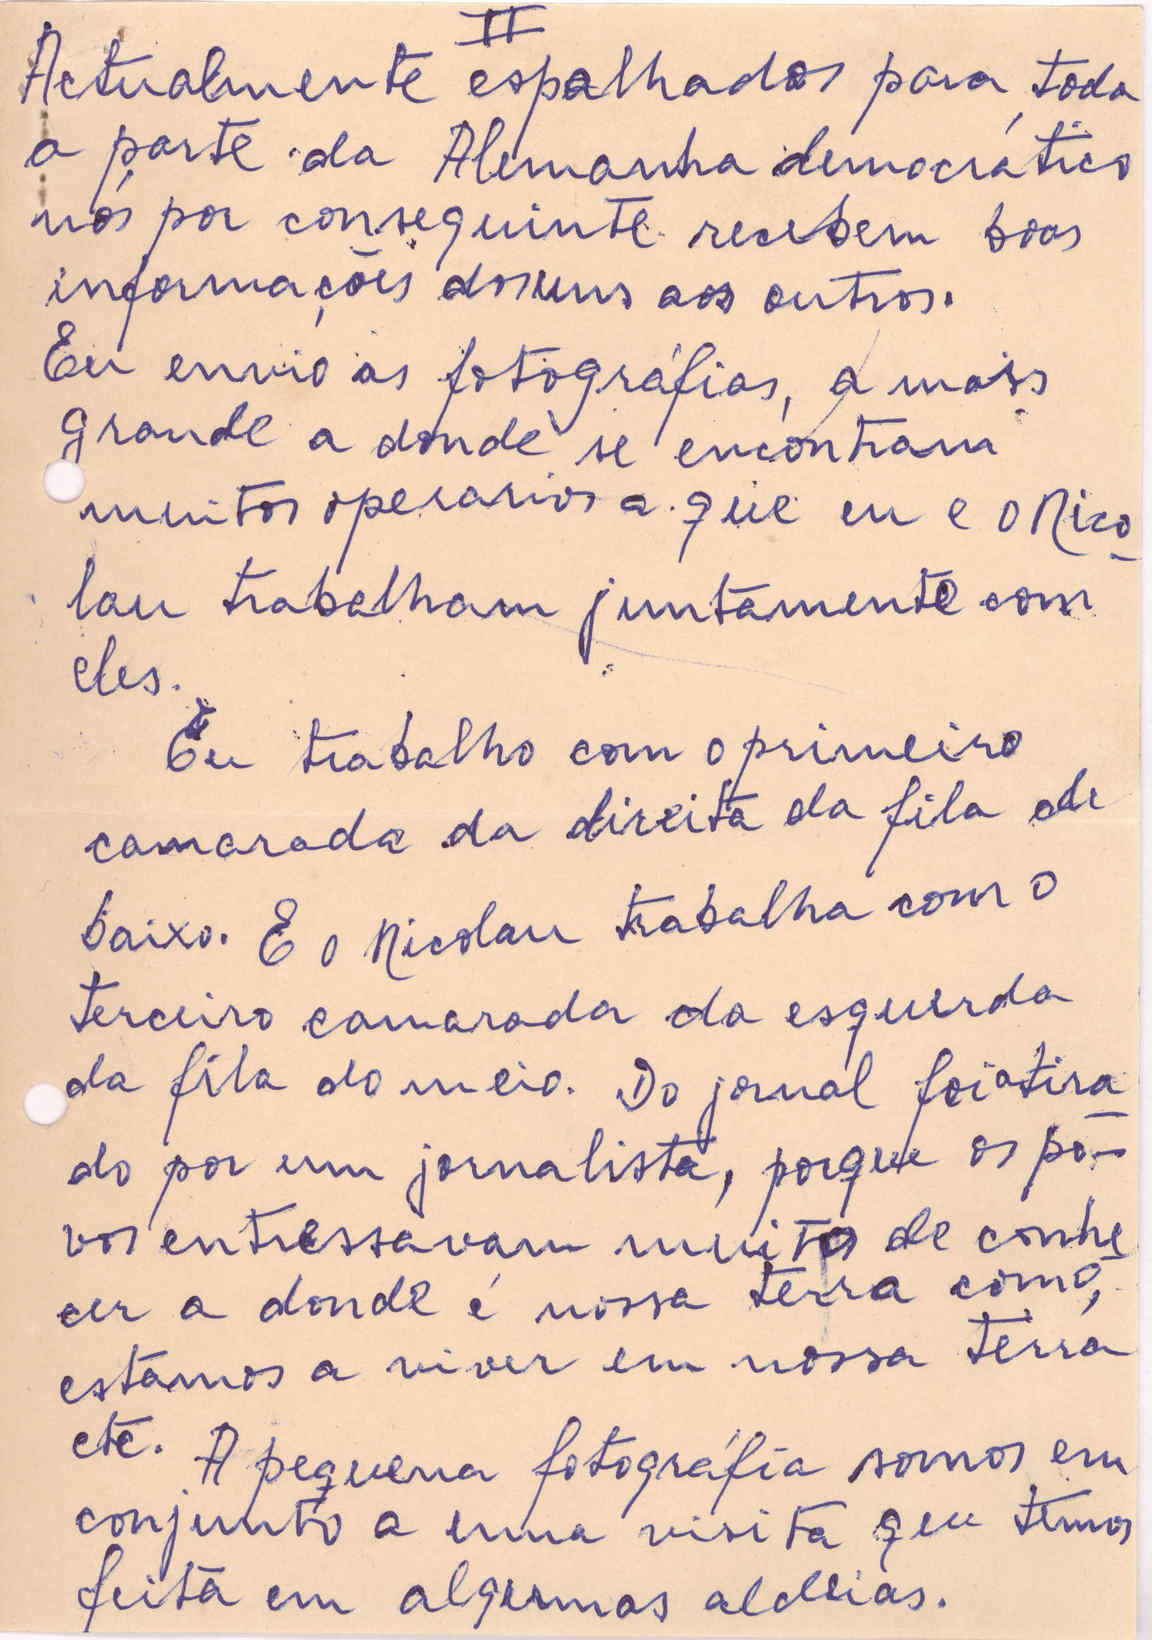 II
Actualmente espalhados para toda
a parte da Alemanha democrático
nós por conseguinte recebem boas
informações dos uns aos outros.
Eu envio as fotográfias, a mais
grande a donde se encontram
muitos operarios a que eu e o Nico_
lau trabalham juntamente com
eles.
Eu trabalho com o primeiro
camarada da direita da fila de
baixo. E o Nicolau trabalha com o
terceiro camarada da esquerda
da fila do meio. Do jornal foi atira
do por um jornalista, porque os po-
vos entressavam muitos de conhe
cer a donde é nossa terra como,
estamos a viver em nossa terra
etc. A pequena fotográfia somos em
conjunto a uma visita que temos
feita em algumas aldeias.